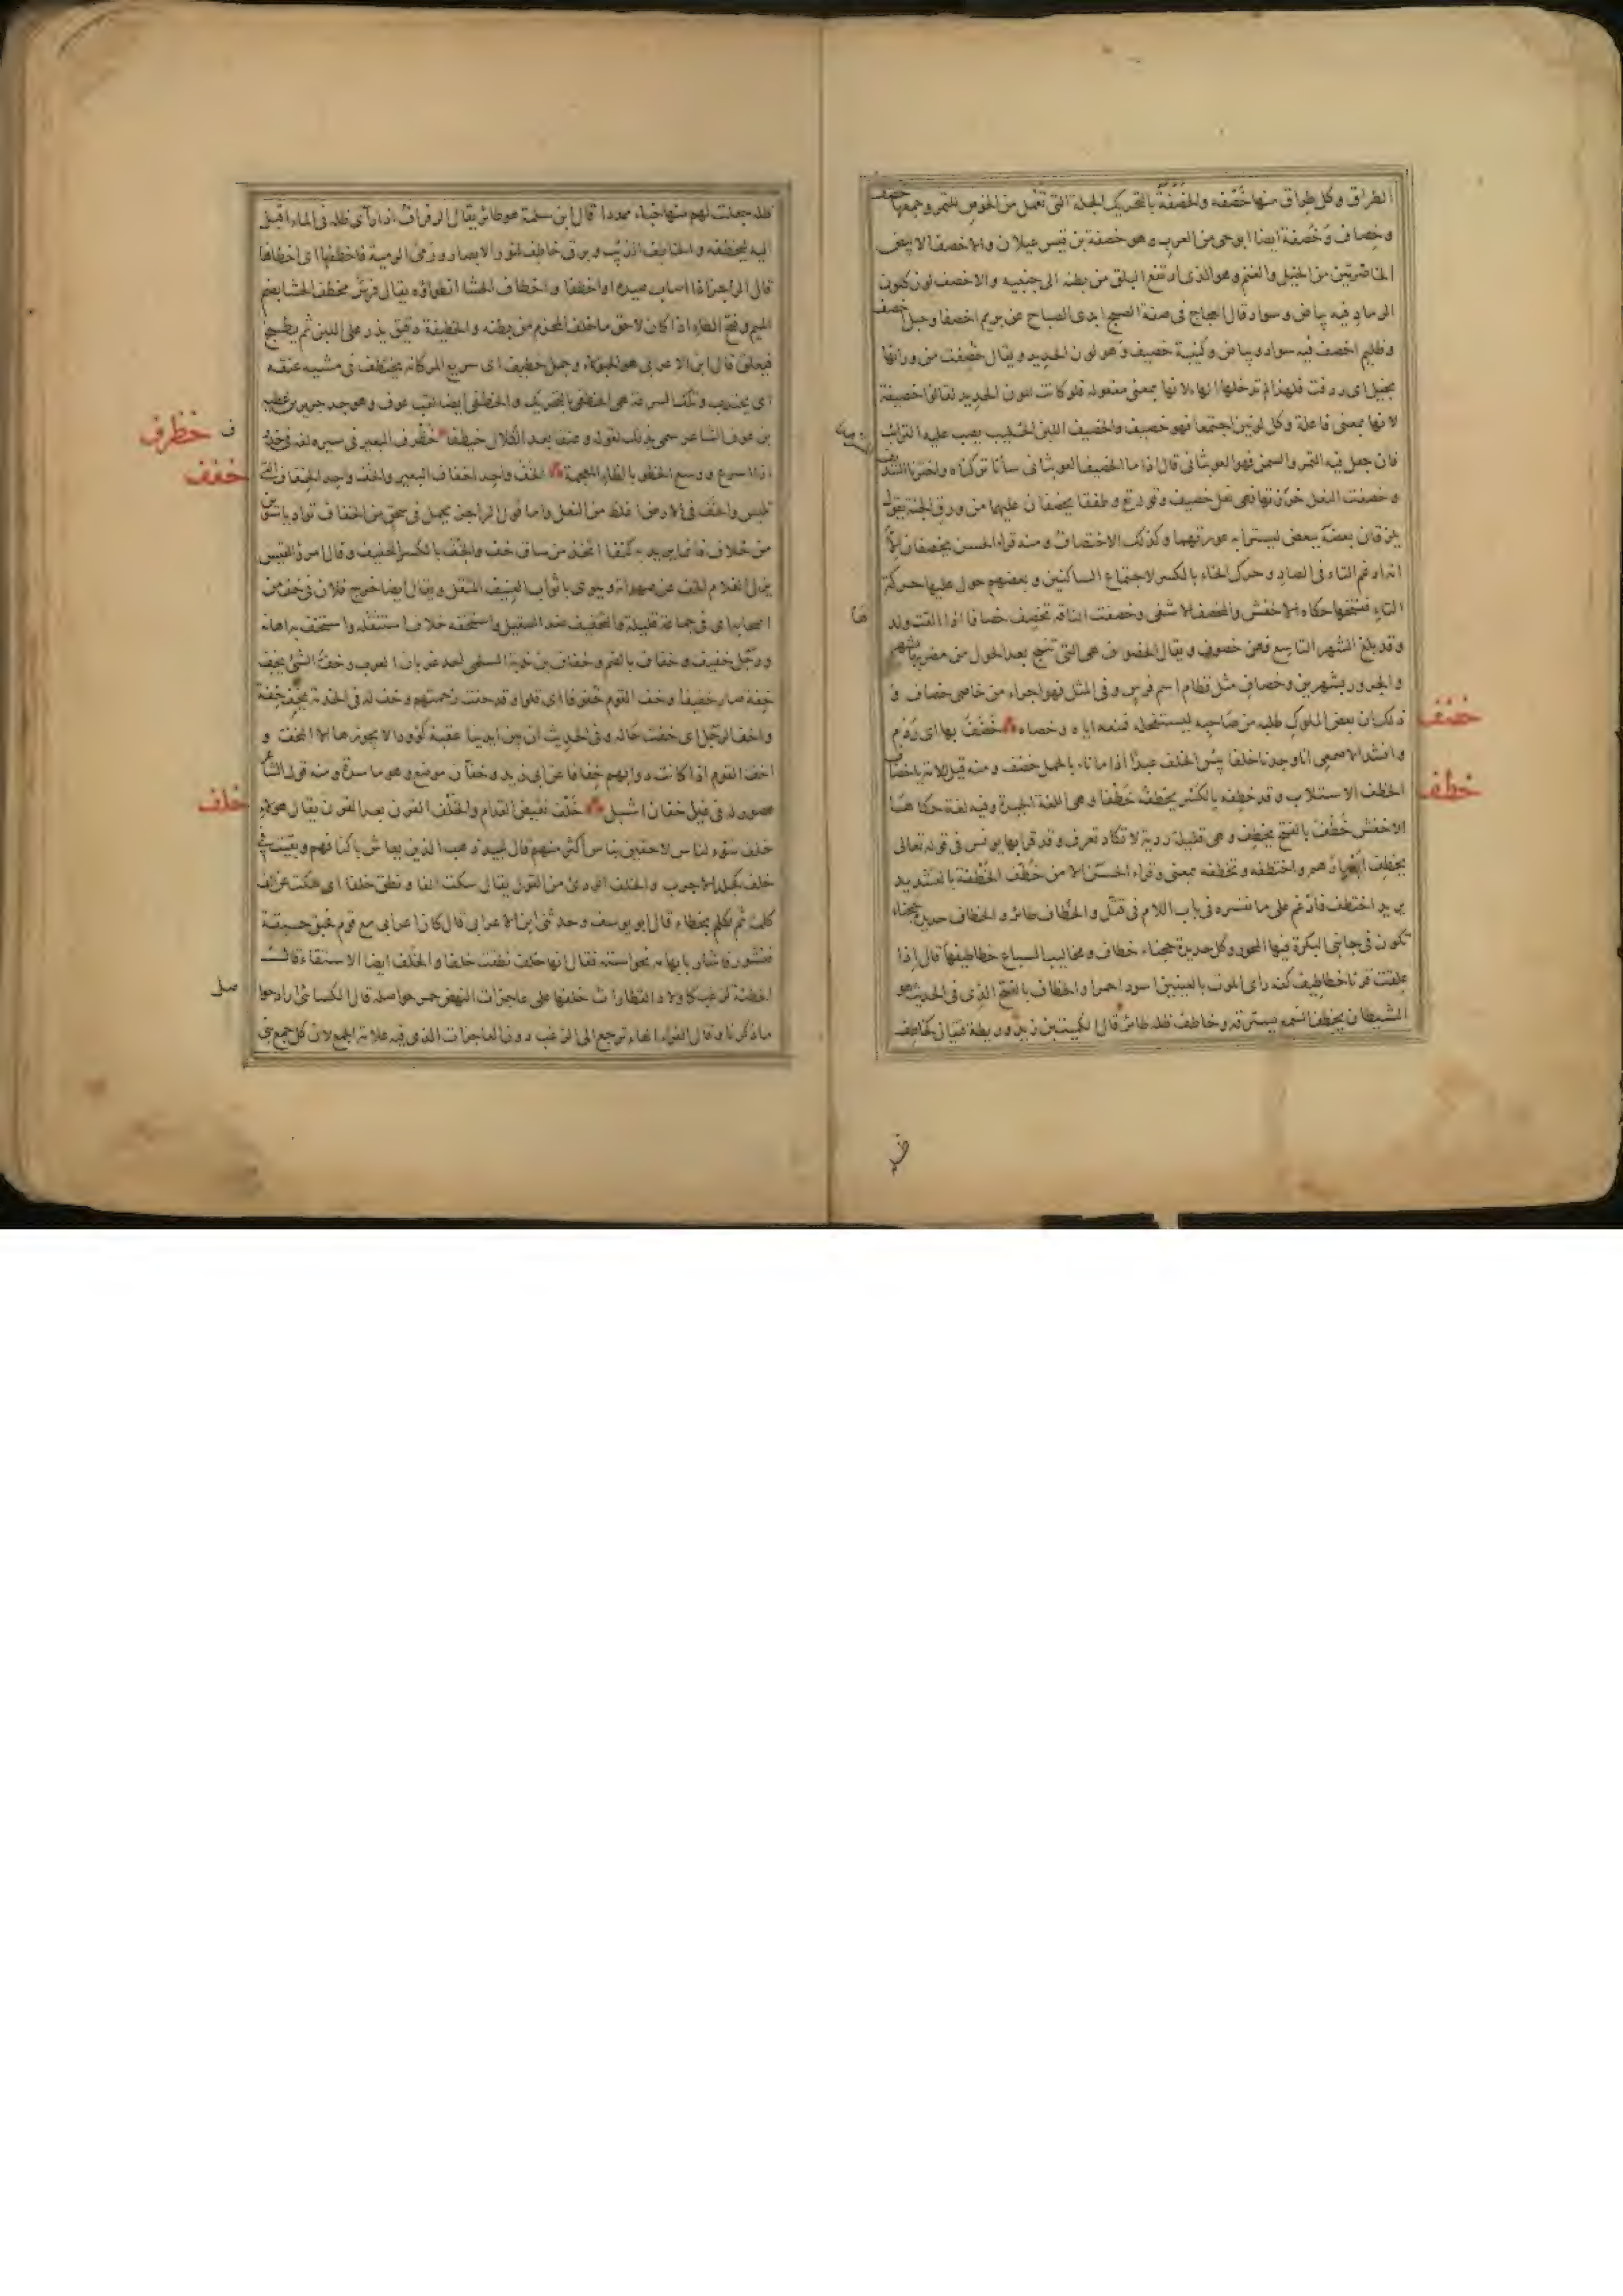 الطراق وكل طراق منها خصفة والخصفة بالتحريك الجلة التى تعمل من الخوص للتمر وجمعها خصف
وخصاف وخصفة ايضا ابو حى من العرب وهو خصفة بن قيس عيلان والاخصف الابيض
الخاصرتين من الخيل والغنم وهو الذى ارتفع البلق من بطنه الى جنبيه والاخصف لون كلون
الرماد فيه بياض وسواد قال العجاج فى صفة الصبح ابدى الصباح عن بريم اخصفا وحبل اخصف
وظليم اخصف فيه سواد وبياض وكتيبة خصيف وهو لون الحديد ويقال خصفت من ورائها
بخيل اى ردفت فلهذا لم تدخلها الهاء لانها بمعنى مفعولة فلو كانت للون الحديد لقالوا خصيفة
لانها بمعنى فاعلة وكل لونين اجتمعا فهو خصيف والخصيف اللبن الحليب يصب عليه الرائب
فان جعل فيه التمر والسمن فهو العوبثانى قال اذا ما الخصيف العوبثانى ساءنا تركناه واخترنا السديف
وخصفت النعل خرزتها فهى نعل خصيف وقوله تع وطفقا يخصفان عليهما من ورق الجنة يقول
يلزقان بعضه ببعض ليسترا به عورتهما وكذلك الاختصاف ومنه قراءة الحسن يخصفان الا
انه ادغم التاء فى الصاد وحرك الخاء بالكسر لاجتماع الساكنين وبعضهم حول عليها حركة
التاء ففتحها حكاه الاخفش والمخصف الاشفى وخصفت الناقة تخصف خصافا اذا القت ولدها
وقد بلغ الشهر التاسع فهى خصوف ويقال الخصوف هى التى تنتج بعد الحول من مضربها بشهر
والجرور بشهرين وخصاف مثل قطام اسم فرس وفى المثل هو اجراء من خاصى خصاف و
ذلك ان بعض الملوك طلبه من صاحبه ليستفحله فمنعه اياه وخصاه خضف بها اى ردم
خضف
وانشد الاصمعى انا وجدنا خلفا بئس الخلف عبدا اذا ما ناء بالحمل خضف ومنه قيل للامة يا خضاف
الخطف الاستلاب وقد خطفه بالكسر يخطفه خطفا وهى اللغة الجيدة وفيه لغة حكاها
خطف
الاخفش خطف بالفتح يخطف وهى قليلة ردية لا تكاد تعرف وقد قرا بها يونس فى قوله تعالى
يخطف ابصارهم واختطفه وتخطفه بمعنى وقراء الحسن الا من خطف الخطفة بالتشديد
يريد اختطف فادغم على ما نفسره فى باب اللام فى قتل والخطاف طائر والخطاف حديدة حجناء
تكون فى جانبى البكرة فيها المحور وكل حديدة حجناء خطاف ومخاليب السباع خطاطيفها قال اذا
علقت قرنا خطاطيف كفه راى الموت بالعينين اسود احمرا والخطاف بالفتح الذى فى الحديث هو
الشيطان يخطف السمع يسترقه وخاطف ظله طائر قال الكميت بن زيد وريطة فتيان كخاطف
ظله جعلت لهم منها خباء ممددا قال ابن سلمة هو طائر يقال له الرفراف اذا رآى ظله فى الماء اقبل
اليه ليخطفه والخاطف الذئب وبرق خاطف لنور الابصار ورمى الرمية فاخطفها اى اخطاها
قال الراجز اذا اصاب صيده او اخطفا واخطاف الحشا انطواؤه يقال فرس مخطف الحشا بضم
الميم وفتح الطاء اذا كان لاحق ما خلف المحزم من بطنه والخطيفة دقيق يذر على اللبن ثم يطبخ
فيلعق قال ابن الاعرابى هو الحبولاء وجمل خطيف اى سريع المر كانه يختطف فى مشيه عنقه
اى يجتذب وتلك السرعة هى الخطفى بالتحريك والخطفى ايضا لقب عوف وهو جد جرير بن عطية
بن عوف الشاعر سمى بذلك لقوله وعنقا بعد الكلال خيطفا خظرف البعير فى سيره لغة فى خذرف
ف خظرف
اذا اسرع ووسع الخطو بالظاء المعجمة الخف واحد اخفاف البعير والخف واحد الخفاف التى
خفف
تلبس والخف فى الارض اغلظ من النعل واما قول الراجز يحمل فى سحق من الخفاف تواديا سوين
من خلاف فانما يريد به كنفا اتخذ من ساق خف والخف بالكسر الخفيف وقال امرؤ القيس
يزل الغلام الخف عن صهواته ويلوى باثواب العنيف المثقل ويقال ايضا خرج فلان فى خف من
اصحابه اى فى جماعة قليلة والتخفيف ضد التثقيل واستخفه خلاف استثقله واستخف به اهانه
ورجل خفيف وخفاف بالضم وخفاف بن ندبة السلمى احد غربان العرب وخف الشئ يخف
خفة صار خفيفا وخف القوم خفوفا اى قلوا وقد خفت زحمتهم وخف له فى الخدمة يخف خفة
واخف الرجل اى خفت حاله وفى الحديث ان بين ايدينا عقبة كؤودا لا يجوزها الا المخف و
اخف القوم اذا كانت دوابهم خفافا عن ابى زيد وخفان موضع وهو ماسدة ومنه قول الشاعر
هصور له فى غيل خفان اشبل خلف نقيض قدام والخلف القرن بعد القرن يقال هؤلاء
خلف
خلف سوء لناس لاحقين بناس اكثر منهم قال لبيد ذهب الذين يعاش باكنافهم وبقيت فى
خلف كجلد الاجرب والخلف الردئ من القول يقال سكت الفا ونطق خلفا اى سكت عن الف
كلمة ثم تكلم بخطاء قال ابو يوسف وحدثنى ابن الاعرابى قال كان اعرابى مع قوم فحبق حبقة
فتشور فاشار بابهامه نحو استه فقال انها خلف نطقت خلفا والخلف ايضا الاستقاء قال
الحطيئة لزغب كاولاد القطا راث خلفها على عاجزات النهض حمر حواصله قال الكسائى اراد حواصل
صل
ما ذكرنا وقال الفراء الهاء ترجع الى الزغب دون العاجزات الذى فيه علامة الجمع لان كل جمع بنى